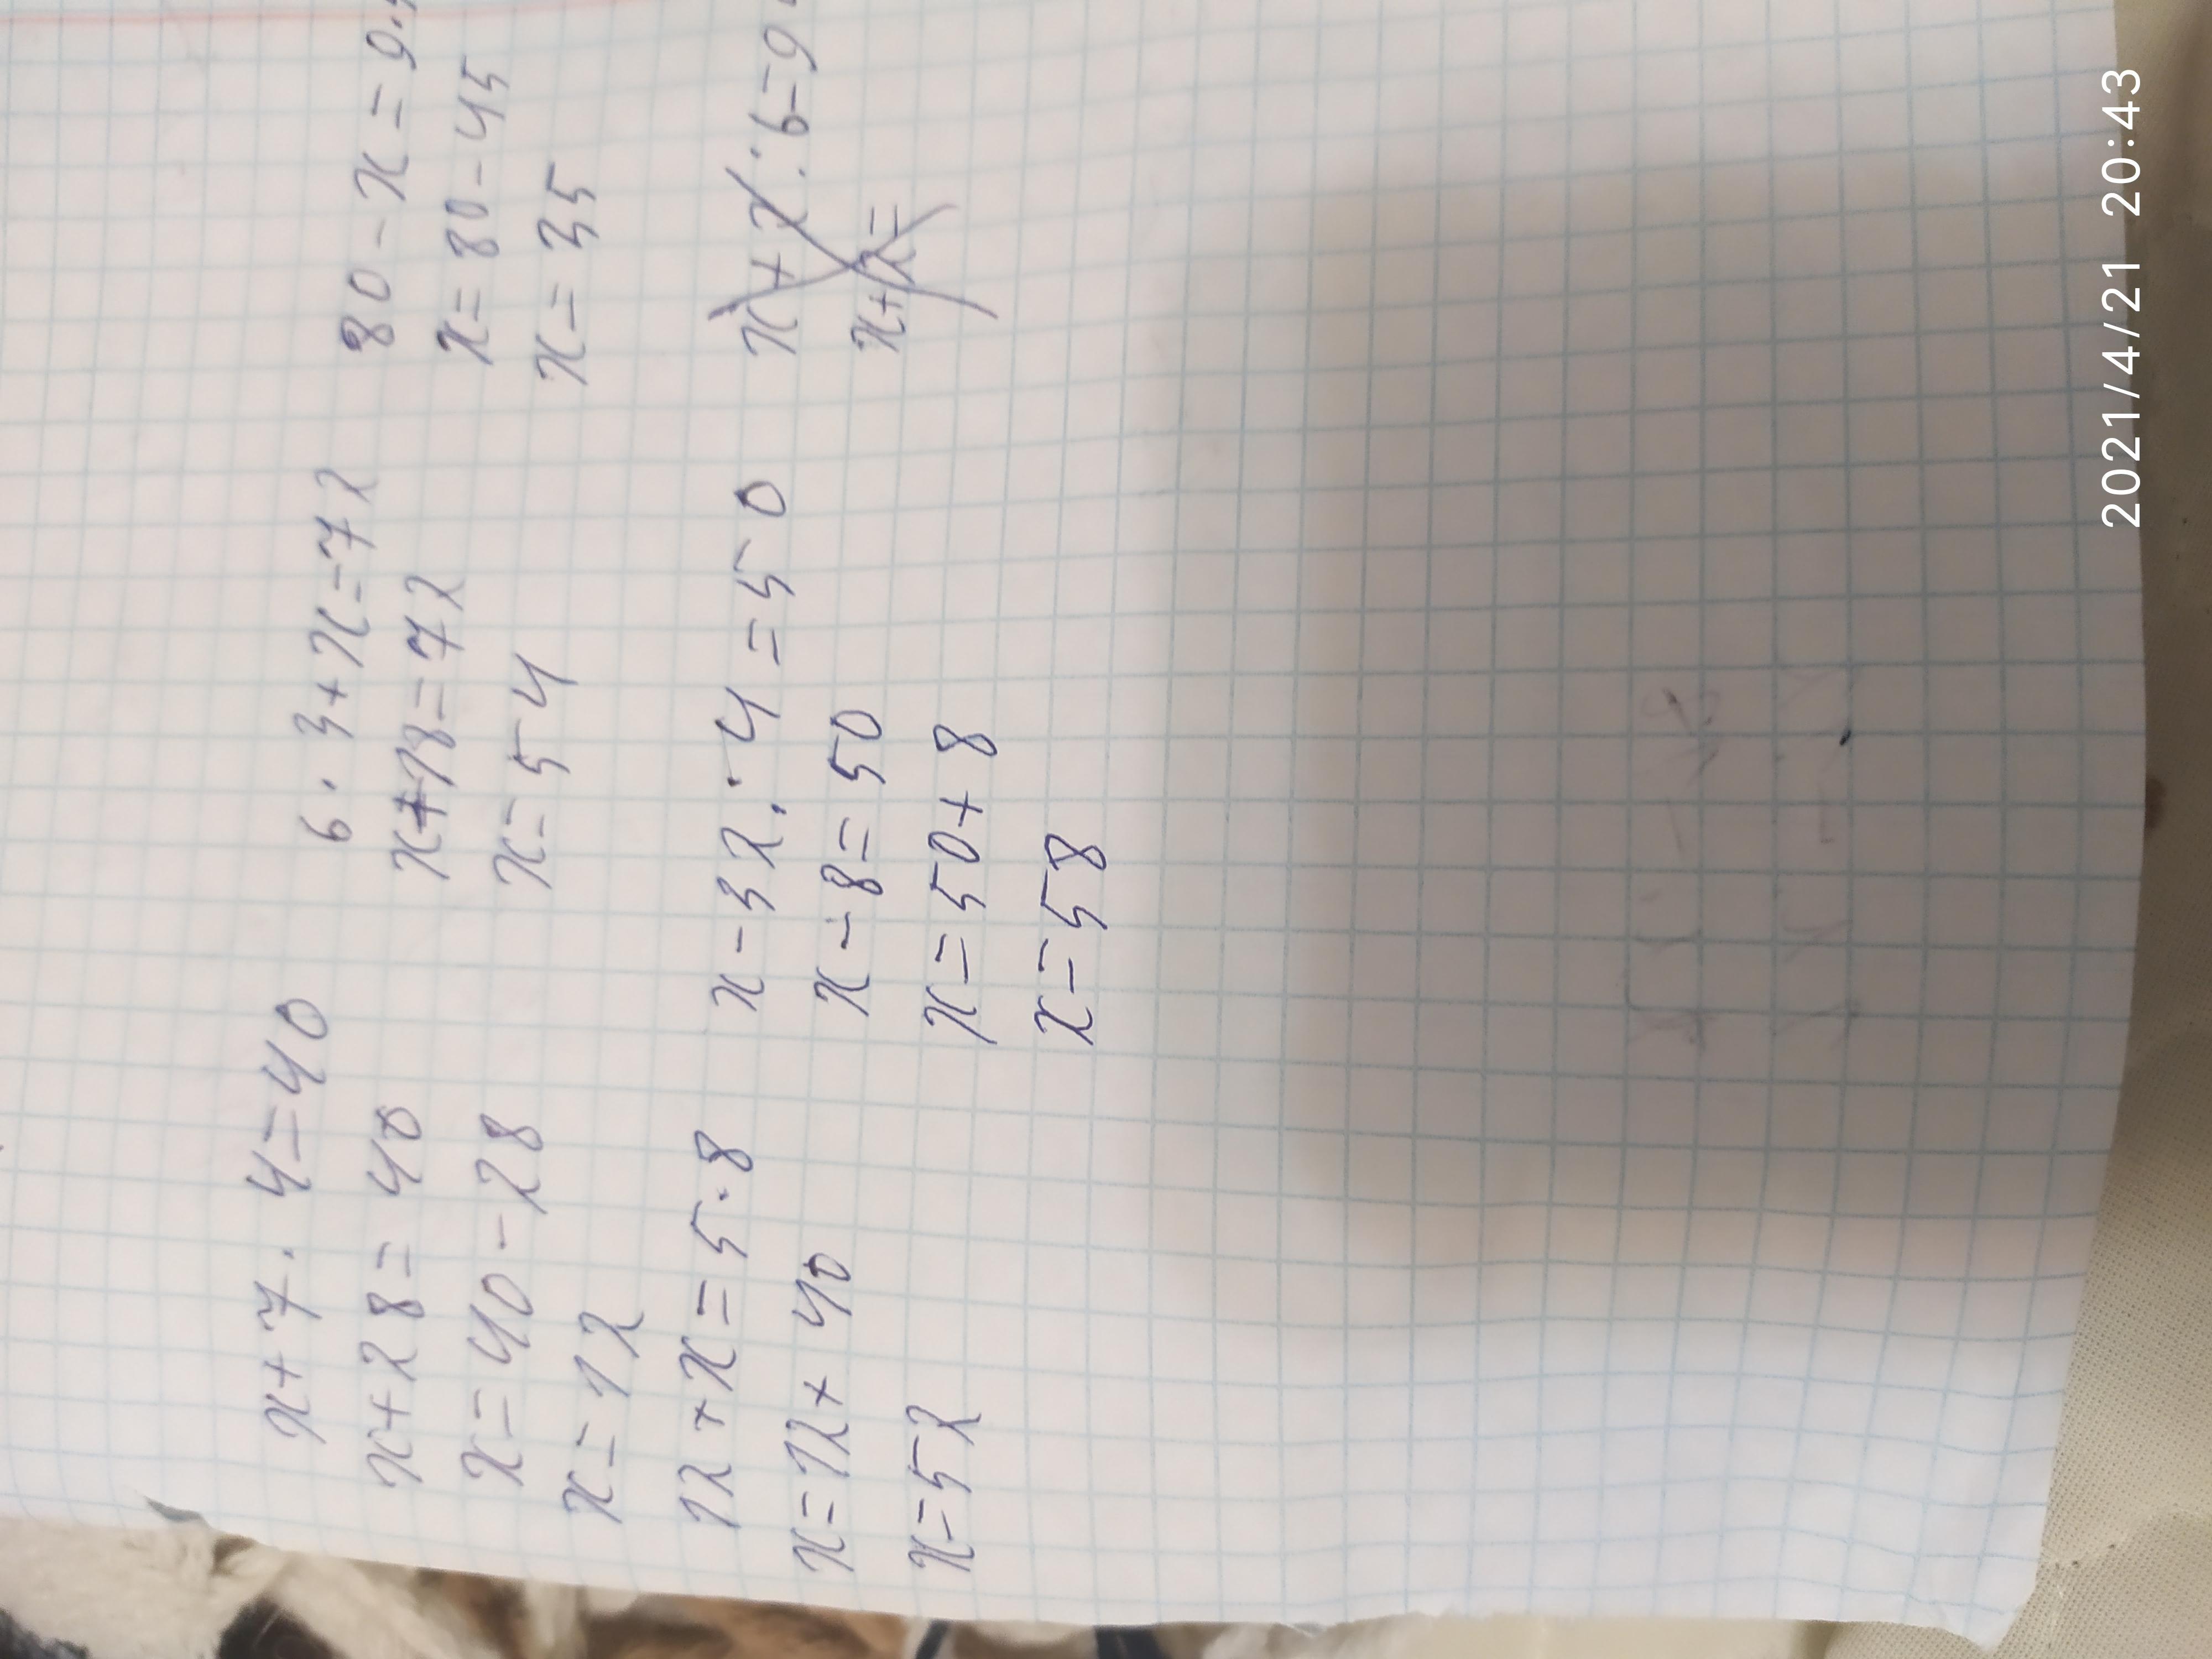 x+7·4=40
x+28=40
x=40-28
x=12
6·3+x=72
x+18=72
x=54
80-x=9·
x=80-45
x=35
12+x=5·8
x=12+40
x=52
x-32:4=50
x-8=50
x=50+8
x=58
x+2:6=9
x+2=
2021/4/21 20:43